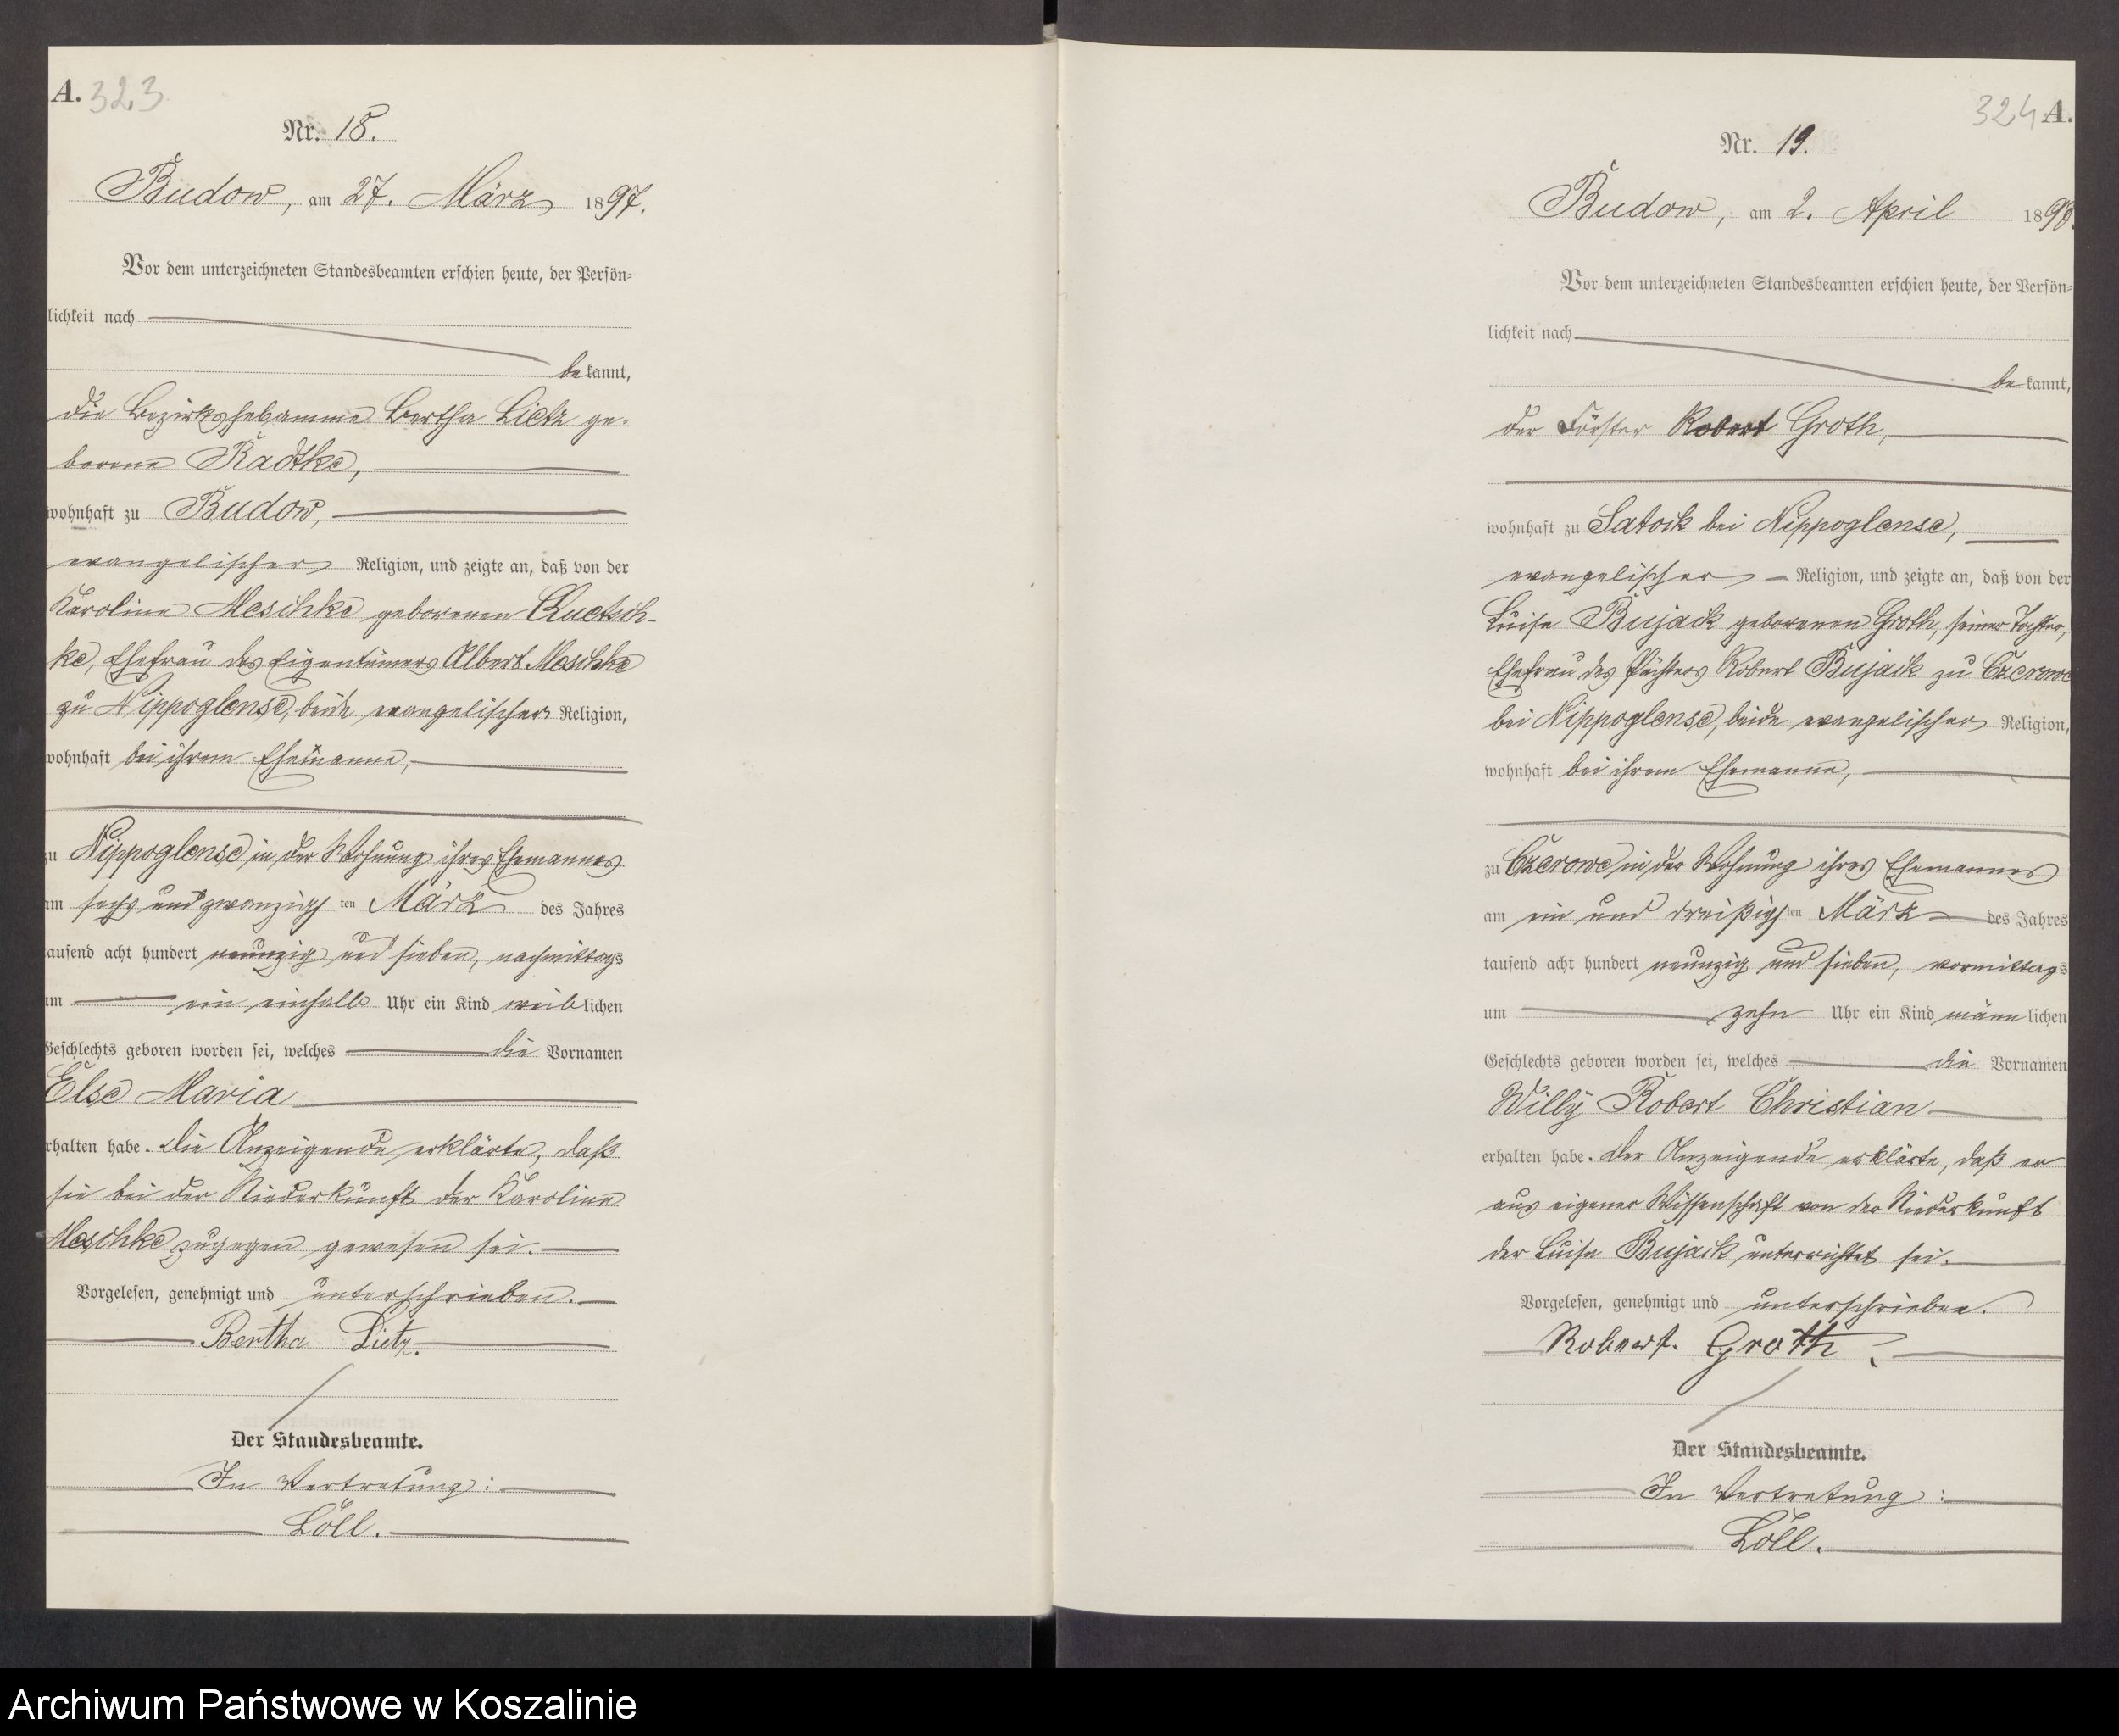 A. 323
Nr. 18.
Budow, am 27. März 1897.
Vor dem unterzeichneten Standesbeamten erschien heute, der Persön-
lichkeit nach
bekannt,
die Bezirkshebamme Bertha Lietz ge-
borene Radtke,
wohnhaft zu Budow,
evangelischer Religion, und zeigte an, daß von der
Karoline Meschke geborenen Quetsch-
ke, Ehefrau des Eigentümers Albert Meschke
zu Nippoglense, beide evangelischer Religion,
wohnhaft bei ihrem Ehemanne,
zu Nippoglense in der Wohnung ihres Ehemannes
am sechs und zwanzigsten März des Jahres
tausend acht hundert neunzig und sieben, nachmittags
um ein einhalb Uhr ein Kind weiblichen
Geschlechts geboren worden sei, welches die Vornamen
Else Maria
erhalten habe. Die Anzeigende erklärte, daß
sie bei der Niederkunft der Karoline
Meschke zugegen gewesen sei.
Vorgelesen, genehmigt und unterschrieben.
Bertha Lietz.
Der Standesbeamte.
In Vertretung:
Löll.
324 A.
Nr. 19.
Budow, am 2. April
Vor dem unterzeichneten Standesbeamten erschien heute, der Persön-
lichkeit nach
bekannt,
der Förster Robert Groth,
wohnhaft zu Satoik bei Nippoglense,
evangelischer Religion, und zeigte an, daß von der
Luise Bujack geborenen Groth, seiner Tochter,
Ehefrau des Pächters Robert Bujack zu Czerowe
bei Nippoglense, beide evangelischer Religion,
wohnhaft bei ihrem Ehemanne,
zu Czerowe in der Wohnung ihres Ehemannes
am ein und dreißigsten März des Jahres
tausend acht hundert neunzig und sieben, vormittags
um zehn Uhr ein Kind männlichen
Geschlechts geboren worden sei, welches die Vornamen
Willy Robert Christian
erhalten habe. Der Anzeigende erklärte, daß er
aus eigener Wissenschaft von der Niederkunft
der Luise Bujack unterrichtet sei.
Vorgelesen, genehmigt und unterschrieben.
Robert Groth
Der Standesbeamte.
In Vertretung:
Löll.
Archiwum Państwowe w Koszalinie